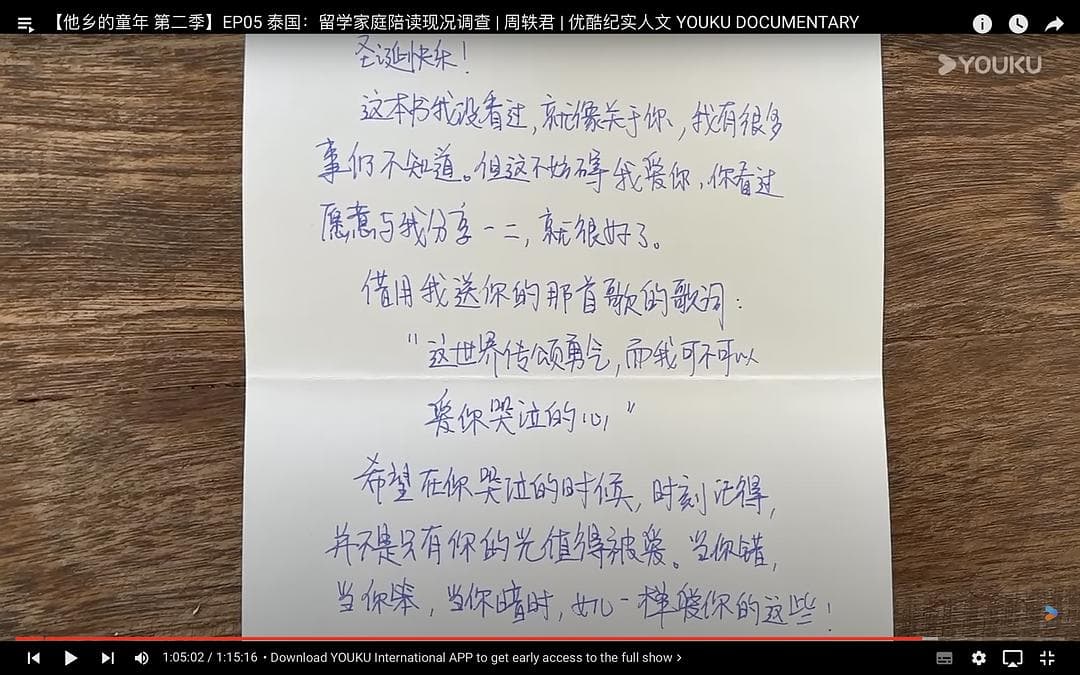 【他乡的童年 第二季】EP05 泰国：留学家庭陪读现况调查 | 周轶君 | 优酷纪实人文 YOUKU DOCUMENTARY
YOUKU
圣诞快乐！
这本书我没看过，就像关于你，我有很多
事们不知道。但这不妨碍我爱你，你看过
愿意与我分享一二，就很好了。
借用我送你的那首歌的歌词：
“这世界传颂勇气，而我可不可以
爱你哭泣的心”
希望在你哭泣的时候，时刻记得，
并不是只有你的光值得被爱。当你错，
当你笨，当你暗时，一样爱你的这些！
1:05:02 / 1:15:16 • Download YOUKU International APP to get early access to the full show >